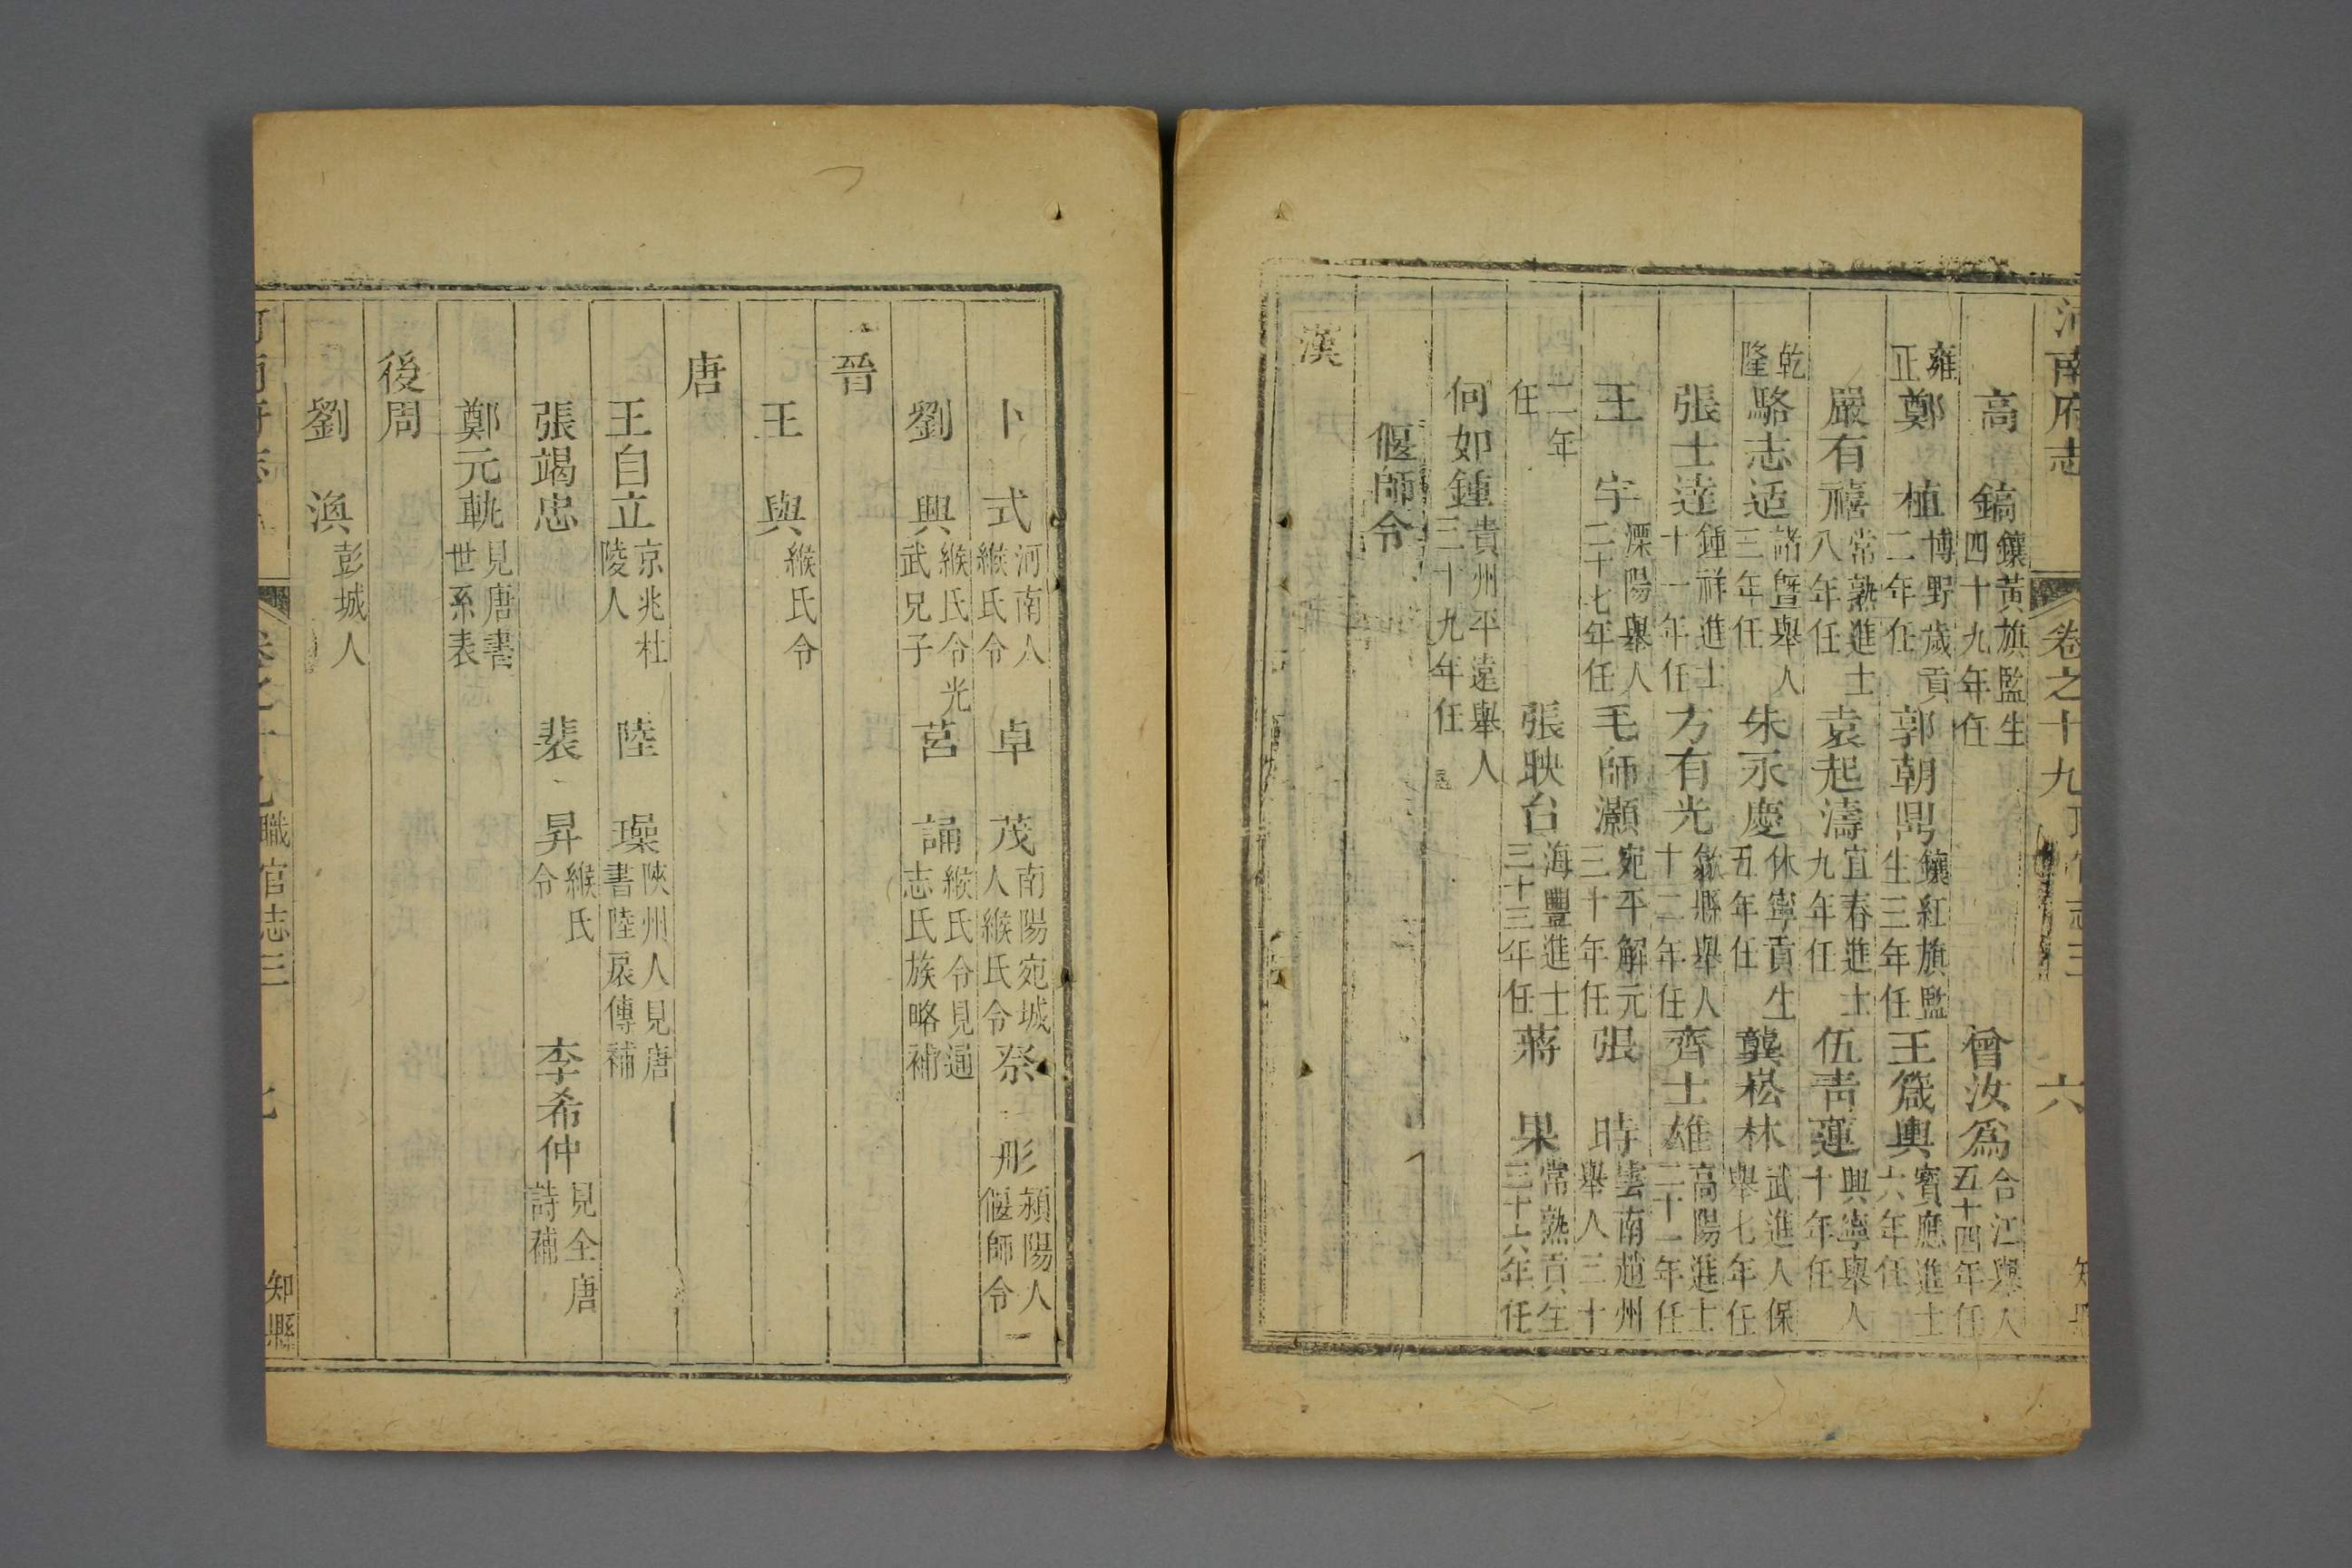 河南府志 卷之十九 職官志三 六 知縣
高鎬 鑲黃旗監生四十九年任 曾汝爲 合江舉人五十四年任
雍正 鄭植 博野歲貢二年任 郭朝鼎 鑲紅旗監生三年任 王箴輿 寶應進士六年任
嚴有禧 常熟進士八年任 袁起濤 宜春進士九年任 伍青蓮 興寧舉人十年任
乾隆 駱志适 諸曁舉人三年任 朱永慶 休寧貢生五年任 龔崧林 武進人保舉七年任
張士達 鍾祥進士十一年任 方有光 歙縣舉人十二年任 齊士雄 高陽進士二十一年任
王宇 溧陽舉人二十七年任 毛師灝 宛平解元三十年任 張時 雲南趙州舉人三十
二年任 張映台 海豐進士三十三年任 蔣果 常熟貢生三十六年任
何如鍾 貴州平遠舉人三十九年任
偃師令
漢
卜式 河南人緱氏令 卓茂 南陽宛城人緱氏令 祭彤 潁陽人偃師令
劉興 緱氏令光武兄子 莒誦 緱氏令見通志氏族略補
晉
王與 緱氏令
唐
王自立 京兆杜陵人 陸璪 陝州人見唐書陸扆傳補
張竭忠 裴昇 緱氏令 李希仲 見全唐詩補
鄭元軌 見唐書世系表
後周
劉渙 彭城人
河南府志 卷之十九 職官志三 七 知縣